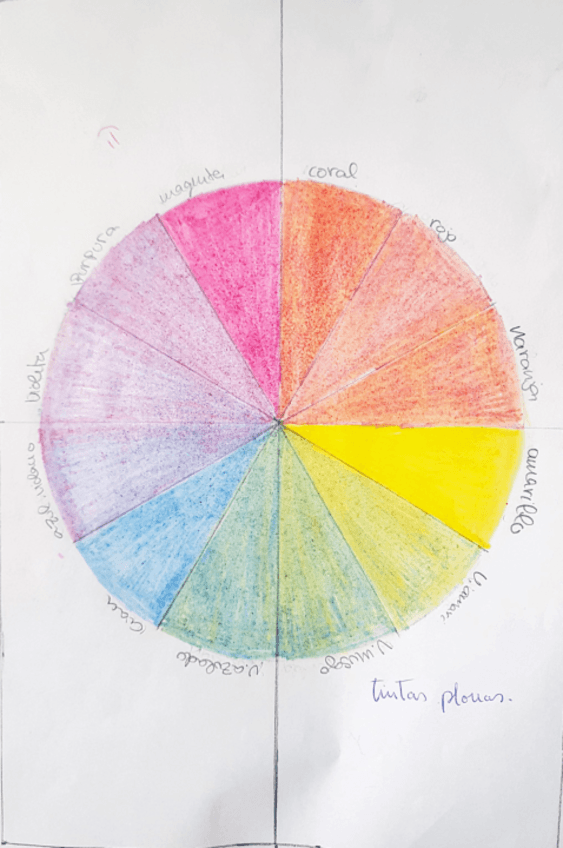 coral
rojo
Naranja
amarillo
V. amari
V. musgo
V. azulado
Cian
azul urbano
Violeta
Púrpura
magenta
tintas planas.